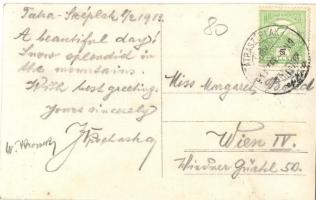 80
Tátra-Széplak 5/2 1913.
A beautiful day!
Snow splendid in
the mountains.
With best greetings
Yours sincerely
Miss Margaret
Wien IV.
Wiedner Gürtel 50.
TÁTRASZÉPLAK